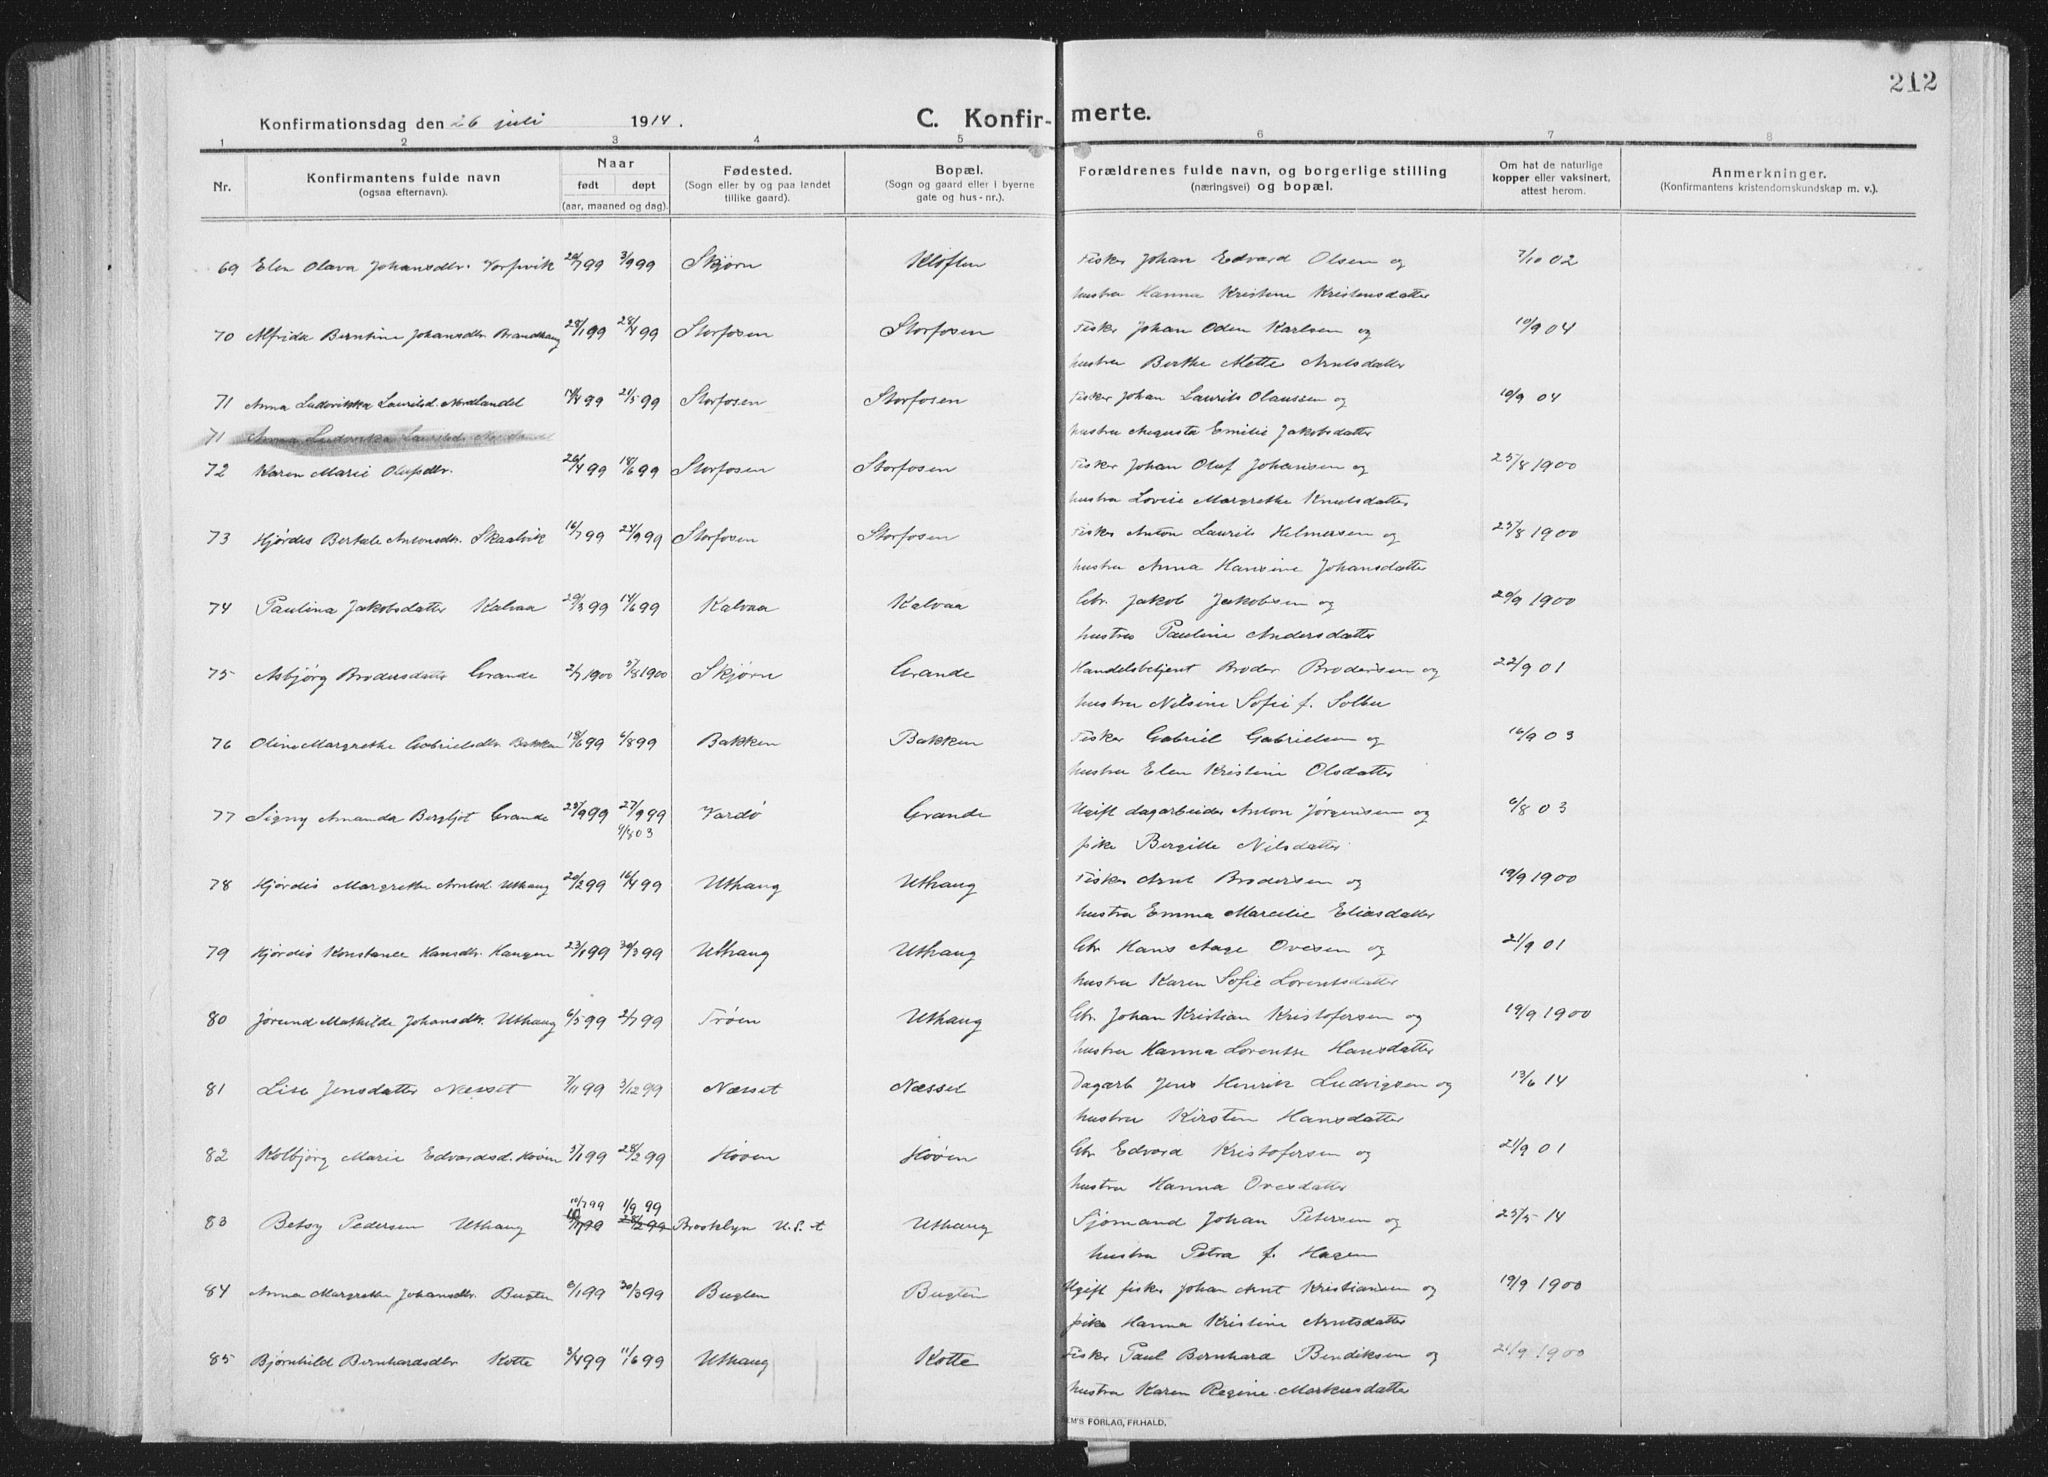 212
Konfirmationsdag den 26 juli 1914. C. Konfir- merte.
1 2 3 4 5 6 7 8
Nr. Konfirmantens fulde navn (ogsaa efternavn). Naar født døpt (aar, maaned og dag). Fødested. (Sogn eller by og paa landet tillike gaard). Bopæl. (Sogn og gaard eller i byerne gate og hus-nr.). Forældrenes fulde navn, og borgerlige stilling (næringsvei) og bopæl. Om hat de naturlige kopper eller vaksinert, attest herom. Anmerkninger. (Konfirmantens kristendomskundskap m. v.).
69 Elen Olava Johansdtr. Vorpvik 20/7 99 3/9 99 Skjørn Kloften Fisker Johan Edvard Olsen og 7/10 02
hustru Hanna Kristine Kristensdatter
70 Alfrida Berntine Johansdtr. Brandhaug 29/1 99 28/4 99 Storfosen Storfosen Fisker Johan Oden Karlsen og 10/9 04
hustru Berthe Mette Arntsdatter
71 Anna Ludovikka Lauritsd. Nordlandet 14/4 99 21/5 99 Storfosen Storfosen Fisker Johan Laurits Olaussen og 10/9 04
71 Anna Ludovika Lauritsd. hustru Augusta Emilie Jakobsdatter
72 Karen Marie Olufsdtr. 26/4 99 18/6 99 Storfosen Storfosen Fisker Johan Oluf Johansen og 25/8 1900
hustru Lovise Margrethe Knutsdatter
73 Hjørdis Bertale Antonsdtr. Skaalvik 16/7 99 24/9 99 Storfosen Storfosen Fisker Anton Laurits Helmersen og 25/8 1900
hustru Anna Hansine Johansdatter
74 Paulina Jakobsdatter Kalvaa 29/3 99 14/6 99 Kalvaa Kalvaa Gbr. Jakob Jakobsen og 20/9 1900
hustru Pauline Andersdatter
75 Asbjørg Brodersdatter Grande 2/7 1900 5/8 1900 Skjørn Grande Handelsbetjent Broder Brodersen og 22/9 01
hustru Nilsine Sofie f. Solber
76 Oline Margrethe Gabrielsdtr. Bakken 18/6 99 6/8 99 Bakken Bakken Fisker Gabriel Gabrielsen og 16/9 03
hustru Elen Kristine Olsdatter
77 Signy Amanda Bergljot Grande 23/9 99 27/9 99 Vardø Grande Ugift dagarbeider Anton Jørgensen og 6/8 03
9/8 03 pike Bergitte Nilsdatter
78 Hjørdis Margrethe Arntsd. Uthaug 20/2 99 16/4 99 Uthaug Uthaug Fisker Arnt Brodersen og 19/9 1900
hustru Emma Marcelie Eliasdatter
79 Hjørdis Konstance Hansdtr. Haugen 23/1 99 30/3 99 Uthaug Uthaug Gbr. Hans Aage Ovesen og 21/9 01
hustru Karen Sofie Lorentsdatter
80 Jørund Mathilde Johansdtr. Uthaug 6/5 99 2/7 99 Frøen Uthaug Gbr. Johan Kristian Kristofersen og 19/9 1900
hustru Hanna Lorentse Hansdatter
81 Lise Jensdatter Næsset 7/11 99 3/12 99 Næsset Næsset Dagarb Jens Henrik Ludvigsen og 13/6 14
hustru Kirsten Hansdatter
82 Kolbjørg Marie Edvardsd. Høven 5/1 99 28/2 99 Høven Høven Gbr. Edvard Kristofersen og 21/9 01
hustru Hanna Ovesdatter
10/7 99 1/9 99
83 Betsy Pedersen Uthaug Brooklyn U.S.A Uthaug Sjømand Johan Petersen og 25/5 14
hustru Petra f. Hagen
84 Anna Margrethe Johansdtr. Bugten 8/1 99 30/3 99 Bugten Bugten Ugift fisker Johan Arnt Kristiansen og 19/9 1900
pike Hanna Kristine Arntsdatter
85 Bjørnhild Bernhardsdtr Kotte 3/4 99 11/6 99 Uthaug Kotte Fisker Paul Bernhard Bendiksen og 21/9 1900
hustru Karen Regine Markusdatter
EM'S FORLAG, FR.HALD.